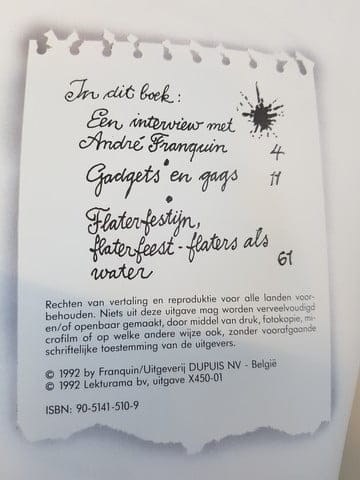 In dit boek:
Een interview met
André Franquin 4
Gadgets en gags 11
Flaterfestijn,
flaterfeest - flaters als
water 61
Rechten van vertaling en reproduktie voor alle landen voor-
behouden. Niets uit deze uitgave mag worden verveelvoudigd
en/of openbaar gemaakt, door middel van druk, fotokopie, mi-
crofilm of op welke andere wijze ook, zonder voorafgaande
schriftelijke toestemming van de uitgevers.
© 1992 by Franquin/Uitgeverij DUPUIS NV - België
© 1992 Lekturama bv, uitgave X450-01
ISBN: 90-5141-510-9